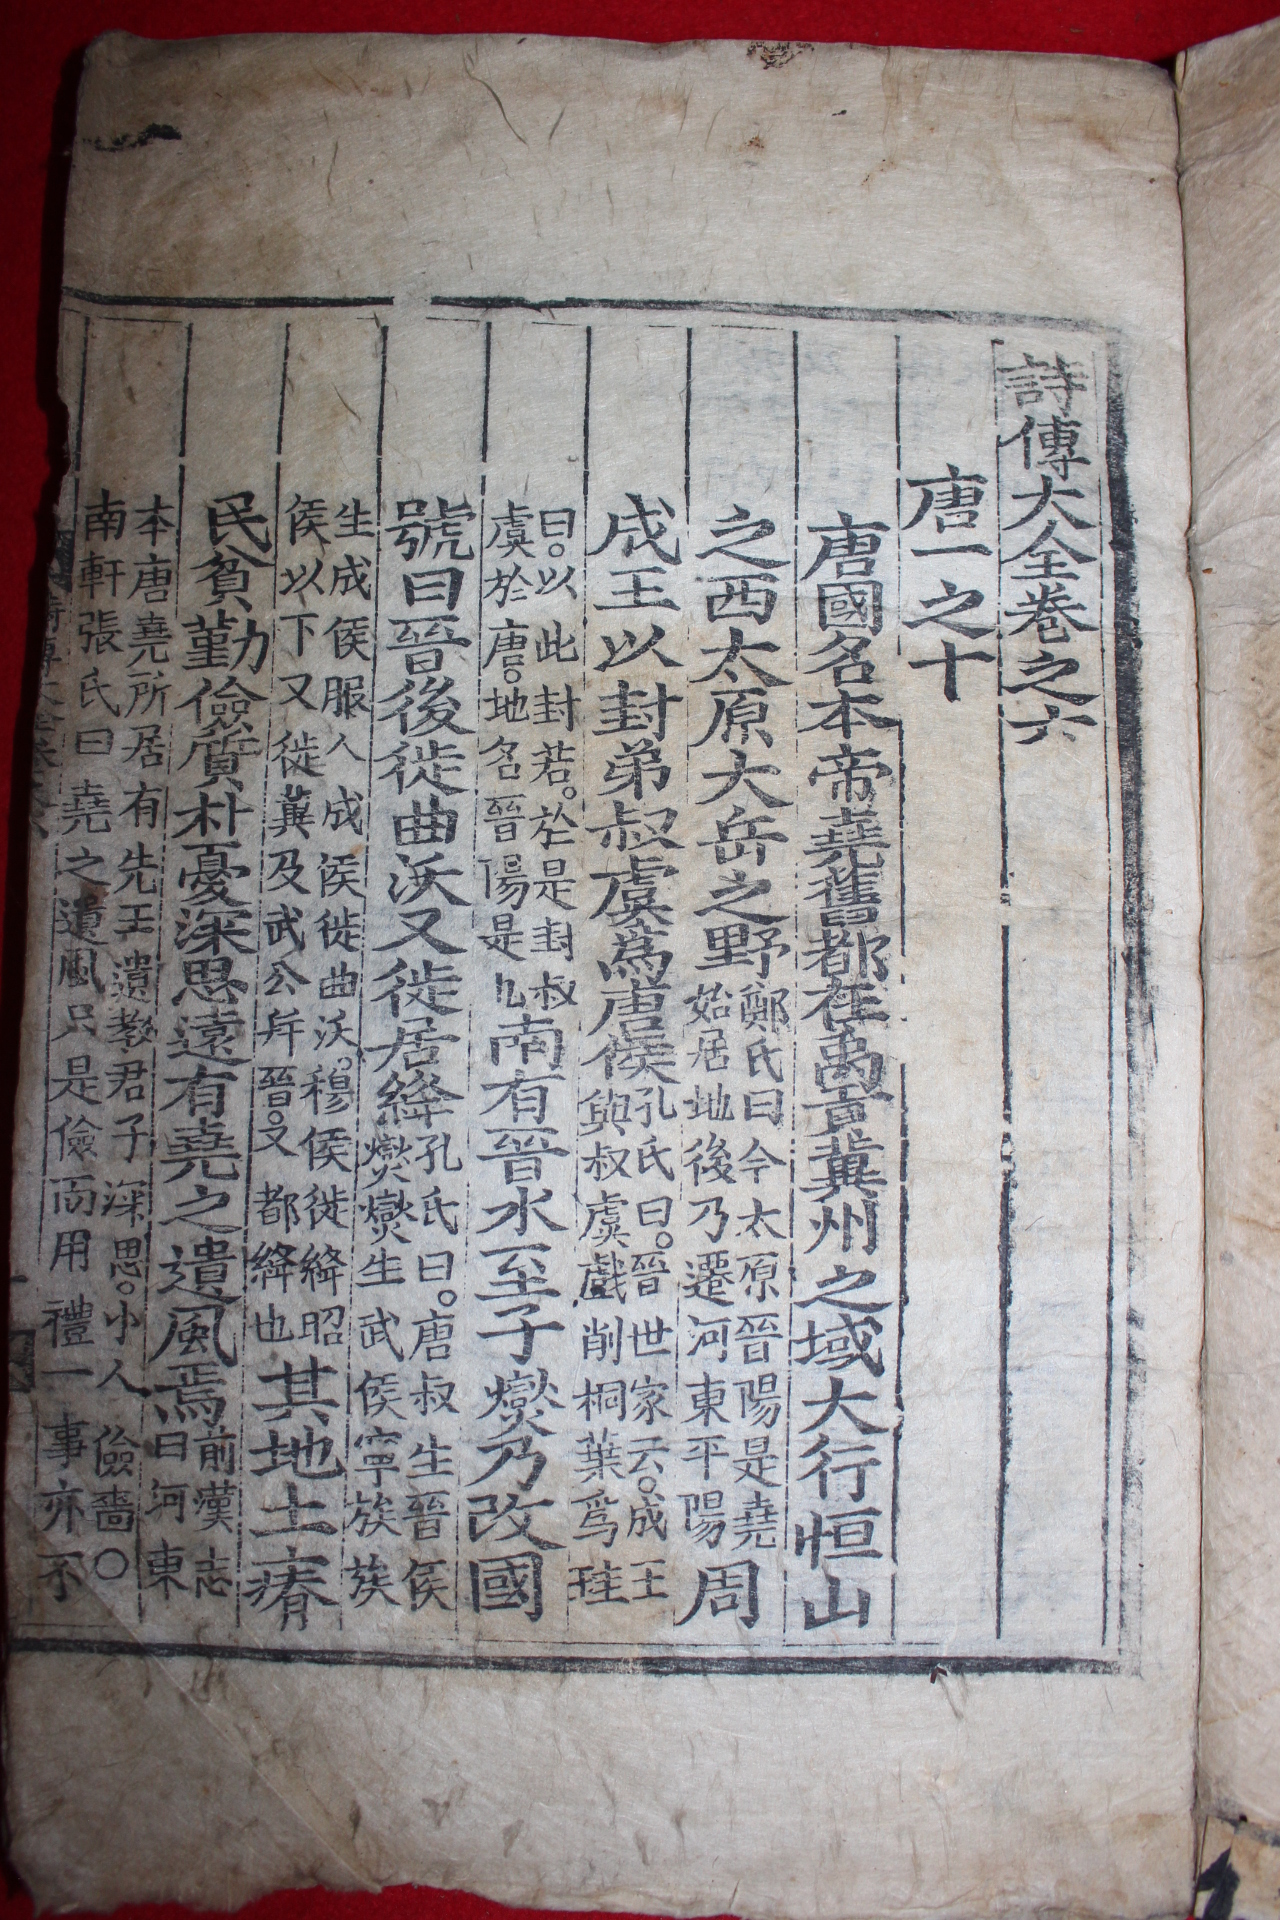 詩傳大全卷之六
唐一之十
唐國名本帝堯舊都在禹貢冀州之域大行恒山
之西太原大岳之野鄭氏曰今太原晉陽是堯始居地後乃遷河東平陽周
成王以封弟叔虞爲唐侯孔氏曰。晉世家云。成王與叔虞戲削桐葉爲珪
曰。以此封若。於是封叔虞於唐。地名晉陽是也南有晉水至子燮乃改國
號曰晉後徙曲沃又徙居絳孔氏曰。唐叔生晉侯燮燮生武侯寧族族
生成侯服人成侯徙曲沃。穆侯徙絳昭侯以下又徙冀及武公幷晉。又都絳也其地土瘠
民貧勤儉質朴憂深思遠有堯之遺風焉前漢志曰河東
本唐堯所居有先王遺敎君子深思。小人儉嗇○南軒張氏曰堯之遺風只是儉而用禮一事亦不